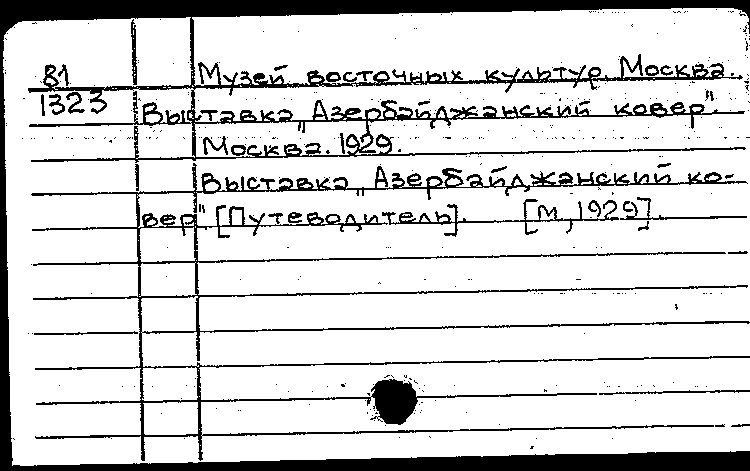 81 Музей восточных культур. Москва.
1323 Выставка „Азербайджанский ковер".
Москва. 1929.
Выставка „Азербайджанский ко-
вер" [Путеводитель]. [М, 1929].